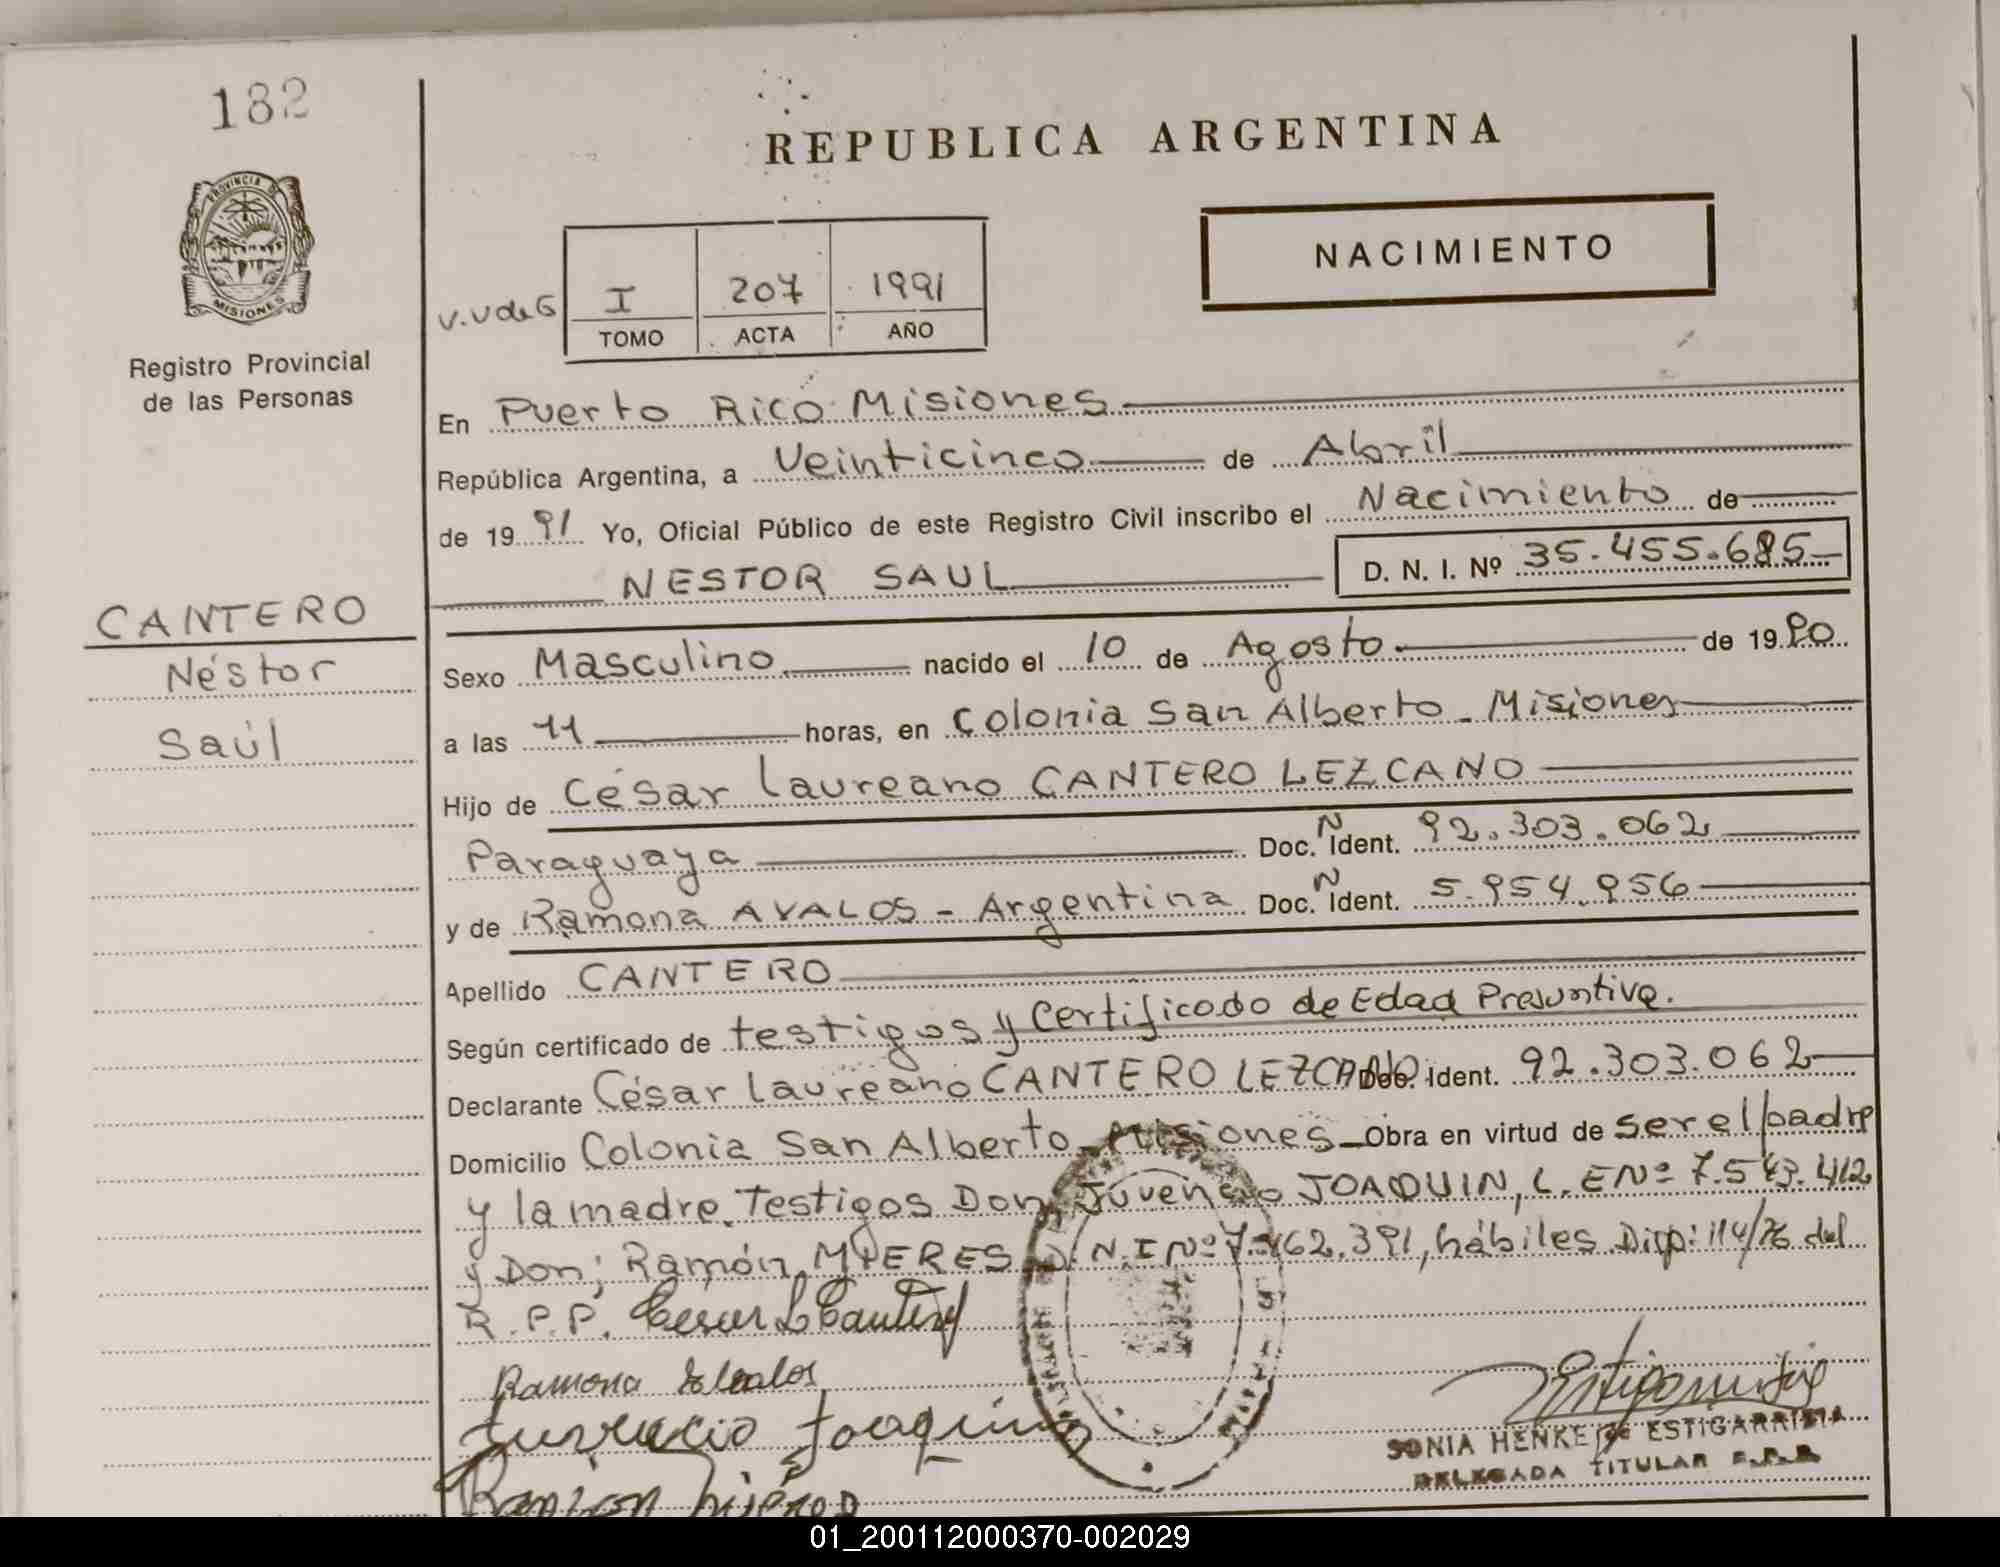 182
REPUBLICA ARGENTINA
PROVINCIA DE
MISIONES
NACIMIENTO
V.V de G I 207 1991
TOMO ACTA AÑO
Registro Provincial
de las Personas
En Puerto Rico Misiones
República Argentina, a Veinticinco de Abril
de 1991 Yo, Oficial Público de este Registro Civil inscribo el Nacimiento de
NESTOR SAUL D. N. I. Nº 35.455.685
CANTERO
Néstor
Saúl
Sexo Masculino nacido el 10 de Agosto de 1990
a las 11 horas, en Colonia San Alberto - Misiones
Hijo de César Laureano CANTERO LEZCANO
Paraguaya Doc. N Ident. 92.303.062
y de Ramona AVALOS - Argentina Doc. N Ident. 5.954.956
Apellido CANTERO
Según certificado de testigos y Certificado de Edad Presuntiva.
Declarante César Laureano CANTERO LEZCANO Doc. Ident. 92.303.062
Domicilio Colonia San Alberto - Misiones Obra en virtud de ser el padre
y la madre. Testigos Don; Juvencio JOAQUIN, L. E Nº 7.543.412
y Don; Ramón MIERES D.N.I Nº 7.462.391, hábiles Disp: 114/76 del
R.P.P. Cesar L Cantero
Ramona Abalos
Juvencio Joaquin
Ramon
SONIA HENKE de ESTIGARRIBIA
DELEGADA TITULAR R.P.P.
01_200112000370-002029